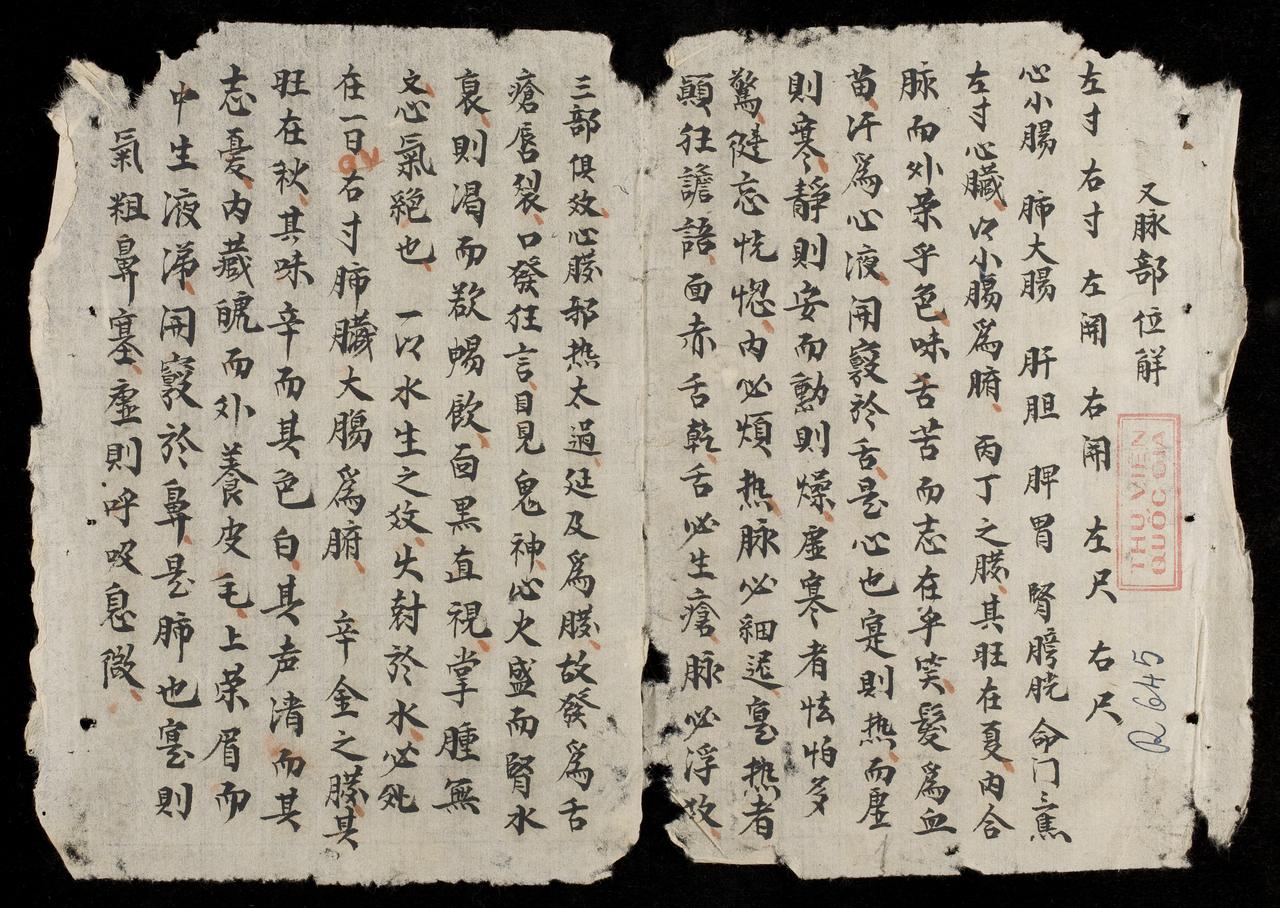 又脉部位解
左寸 右寸 左関 右関 左尺 右尺
心小腸 肺大腸 肝胆 脾胃 腎膀胱 命门三焦
左寸心臟以小腸爲腑丙丁之臟其旺在夏内合
脉而外荣乎色味舌苦而志在笑髮爲血
苗汗爲心液開竅於舌是心也寔則热而虚
則寒静則安而動則燥虚寒者怯怕多
驚健忘恍惚内必煩热脉必細遲寔热者
顛狂譫語面赤舌乾舌必生瘡脉必浮
三部俱效心臟邪热太過延及爲臟故發爲舌
瘡唇裂口發狂言目見鬼神心火盛而腎水
衰則渴而欲暢飲面黑直視掌腫無
文心氣絕也 一以水生之於水必死
在一日右寸肺臟大腸爲腑 辛金之臟其
旺在秋其味辛而其色白其声清而其
志憂内藏魄而外養皮毛上荣眉而
中生液涕開竅於鼻是肺也寔則
氣粗鼻塞虚則呼吸息微
THU VIEN
QUOC GIA
R 645